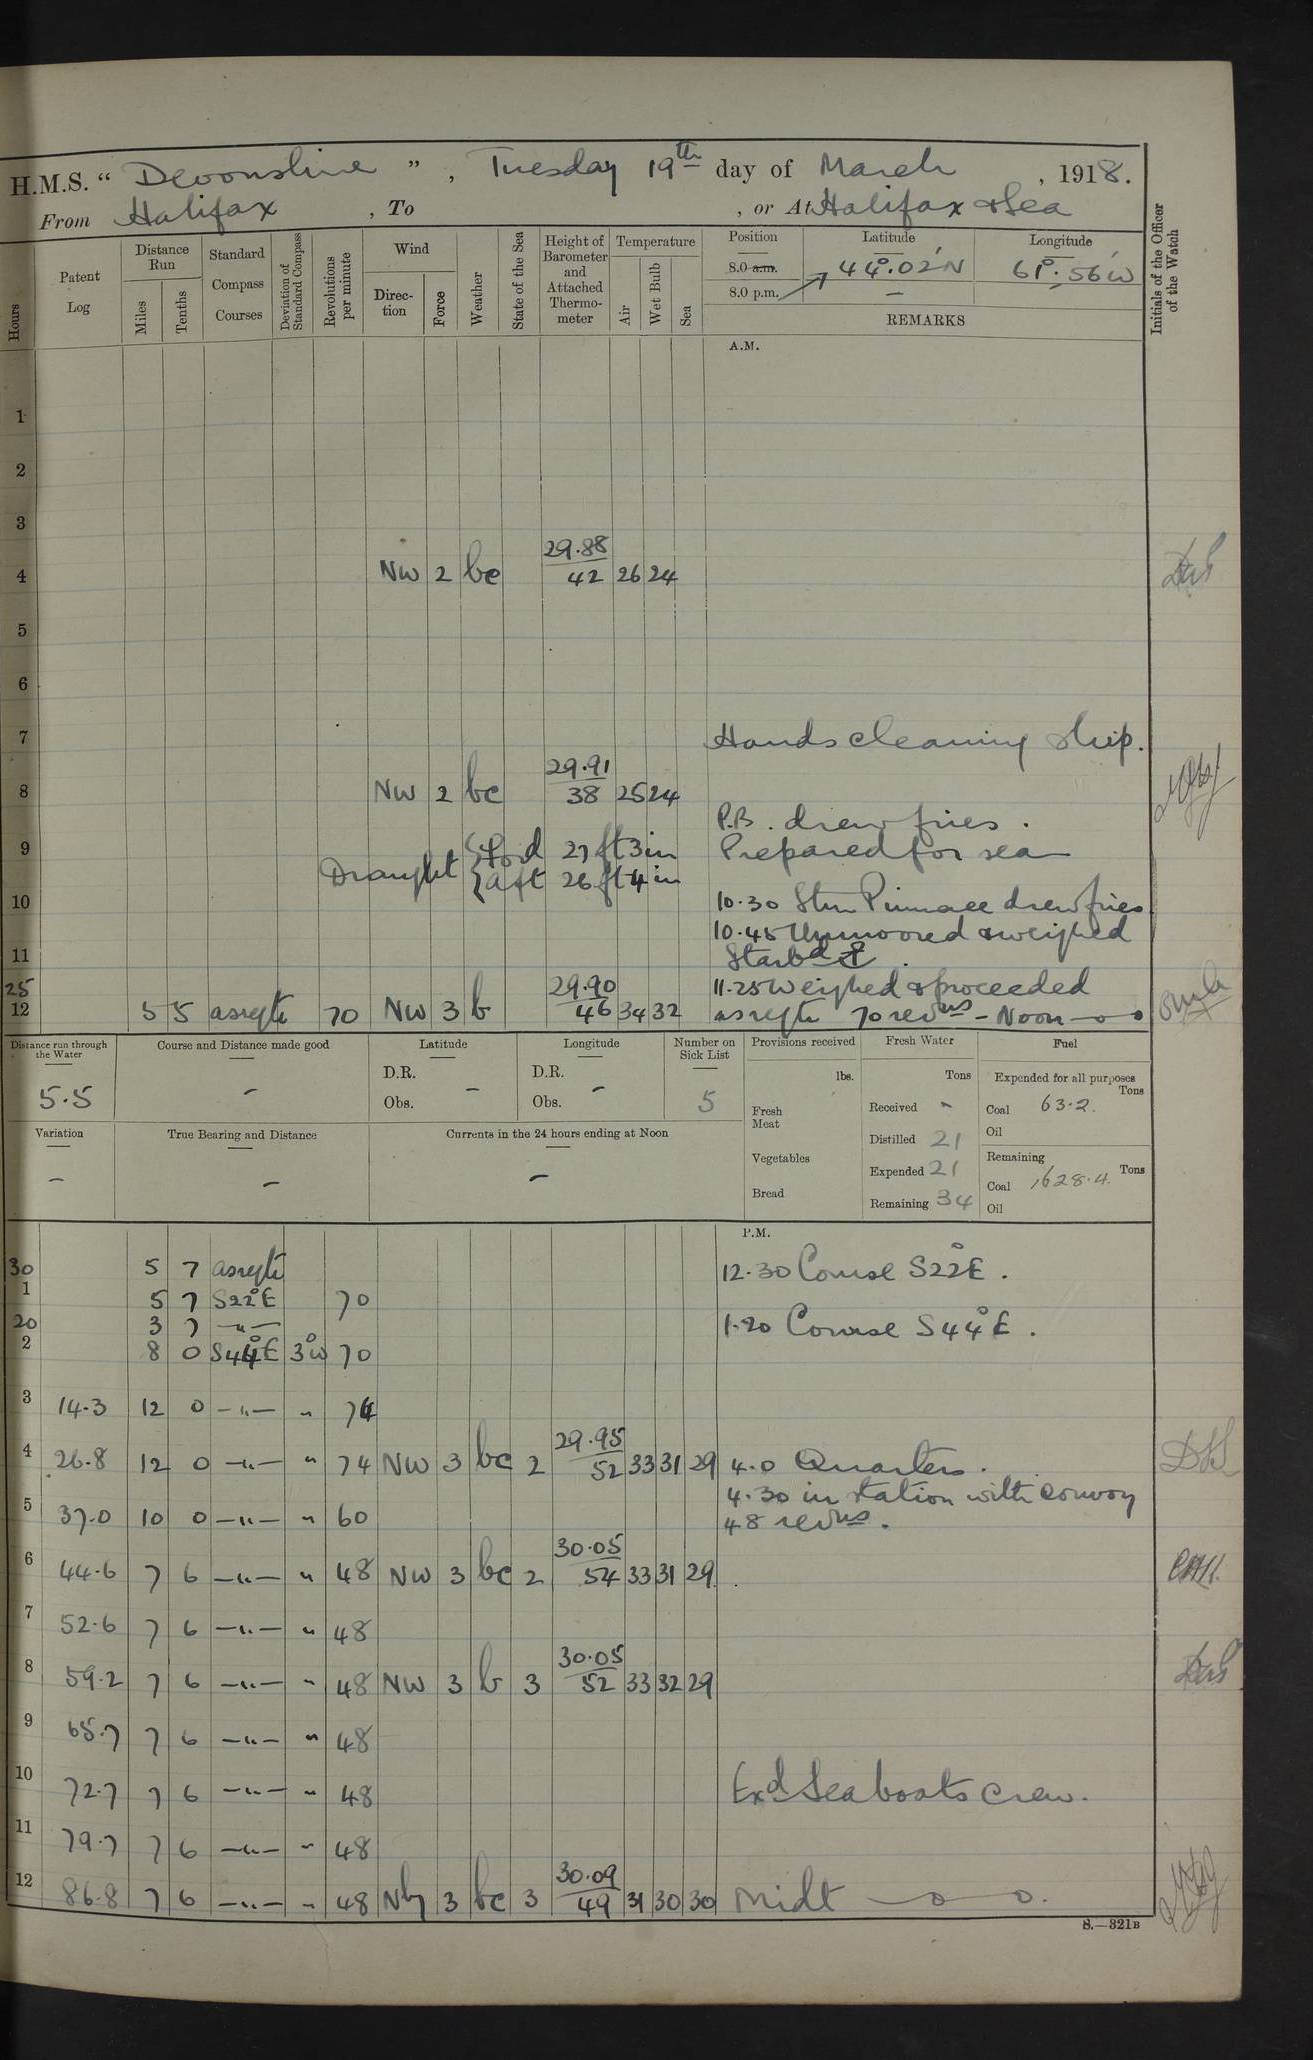 H.M.S. “ Devonshire ” , Tuesday 19th day of March , 1918.
From Halifax , To , or At Halifax & Sea
Hours
Patent Log
Distance Run
Miles
Tenths
Standard Compass Courses
Deviation of Standard Compass
Revolutions per minute
Wind
Direc-tion
Force
Weather
State of the Sea
Height of Barometer and Attached Thermo-meter
Temperature
Air
Wet Bulb
Sea
Position
Latitude
Longitude
8.0 a.m.
8.0 p.m. 44°.02'N 61°.56'W
–
REMARKS
Initials of the Officer of the Watch
A.M.
1
2
3
4 NW 2 bc 29.88 42 26 24
5
6
7 Hands cleaning ship.
8 NW 2 bc 29.91 38 25 24
P.B. drew fires.
9 Draught { ford 27 ft 3 in Prepared for sea
{ aft 26 ft 4 in
10 10.30 Stm Pinnace drew fires
10.45 Unmoored & weighed
11 Starbd
25 11.25 Weighed & proceeded
12 5 5 asreqte 70 NW 3 b 29.90 46 34 32 asreqte 70 revns – Noon —o—o
Distance run through the Water
5.5
Course and Distance made good
–
Latitude
D.R. –
Obs.
Longitude
D.R. –
Obs.
Number on Sick List
5
Provisions received
lbs.
Fresh Meat
Vegetables
Bread
Fresh Water
Tons
Received -
Distilled 21
Expended 21
Remaining 34
Fuel
Expended for all purposes
Tons
Coal 63.2.
Oil
Remaining
Coal 1628.4. Tons
Oil
Variation
–
True Bearing and Distance
–
Currents in the 24 hours ending at Noon
–
P.M.
30 5 7 asreqte 12.30 Course S22°E.
1 5 7 S22°E 70
20 3 7 —"— 1.20 Course S44°E.
2 8 0 S44°E 3°W 70
3 14.3 12 0 —"— " 74
4 26.8 12 0 —"— " 74 NW 3 bc 2 29.95 52 33 31 29 4.0 Quarters.
4.30 in station with convoy
5 37.0 10 0 —"— " 60 48 revns.
6 44.6 7 6 —"— " 48 NW 3 bc 2 30.05 54 33 31 29
7 52.6 7 6 —"— " 48
8 59.2 7 6 —"— " 48 NW 3 b 3 30.05 52 33 32 29
9 65.7 7 6 —"— " 48
10 72.7 7 6 —"— " 48 Exd Sea boats crew.
11 79.7 7 6 —"— " 48
12 86.8 7 6 —"— " 48 Nly 3 bc 3 30.09 49 31 30 30 Midt —o—o.
S.—321B